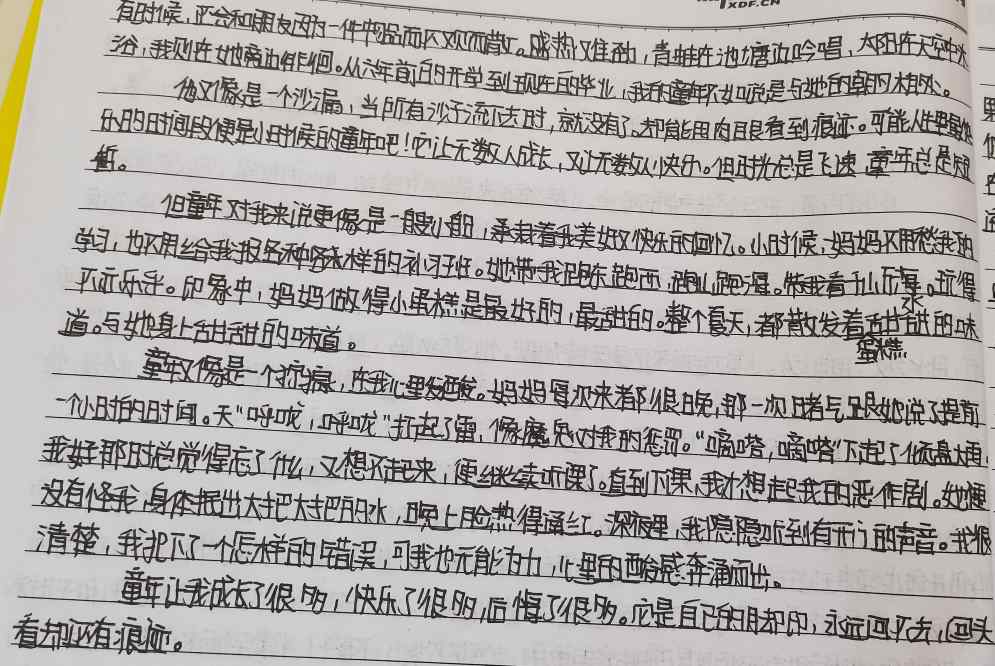 XDF.CN
有时候,还会和朋友因为一件物品而不欢而散。盛热难耐,青蛙在池塘边吟唱,太阳在天空中沐
浴,我则在她旁边作伴。从六年前的开学到现在的毕业,我的童年不如说是与她的朝夕相处。
他又像是一个沙漏,当所有沙子流下去时,就没有了。却能用肉眼看到痕迹。可能人生里最快
乐的时间段便是小时候的童年吧!它让无数人成长,又让无数人快乐。但时光总是飞速,童年总是短
暂。
但童年对我来说更像是一艘小船,承载着我美好又快乐的回忆。小时候,妈妈不用愁我的
学习,也不用给我报各种各样的补习班。她带我跑东跑西,跑山跑湿。带我看千山万水。玩得
不亦乐乎。印象中,妈妈做得小蛋糕是最好的,最甜的。整个夏天,都散发着甜甜蛋糕的味
道。与她身上甜甜的味道。
童年又像是一个抓痕,在我心里发酸。妈妈每次来都很晚,那一次赌气跟她说了提前
一个小时的时间。天“呼咙,呼咙”打起了雷,像魔鬼对我的惩罚。“嘀嗒,嘀嗒”下起了倾盆大雨,
我好那时总觉得忘了什么,又想不起来,便继续听课了。直到下课,我才想起我的恶作剧。她便
没有怪我,身体抿出大把大把的水,晚上脸热得通红。深夜里,我隐隐听到有开门的声音。我很
清楚,我犯了一个怎样的错误,可我也无能为力,心里的酸感奔涌而出。
童年让我成长了很多,快乐了很多,后悔了很多。它是自己的脚印,永远回不去,回头
看却还有痕迹。